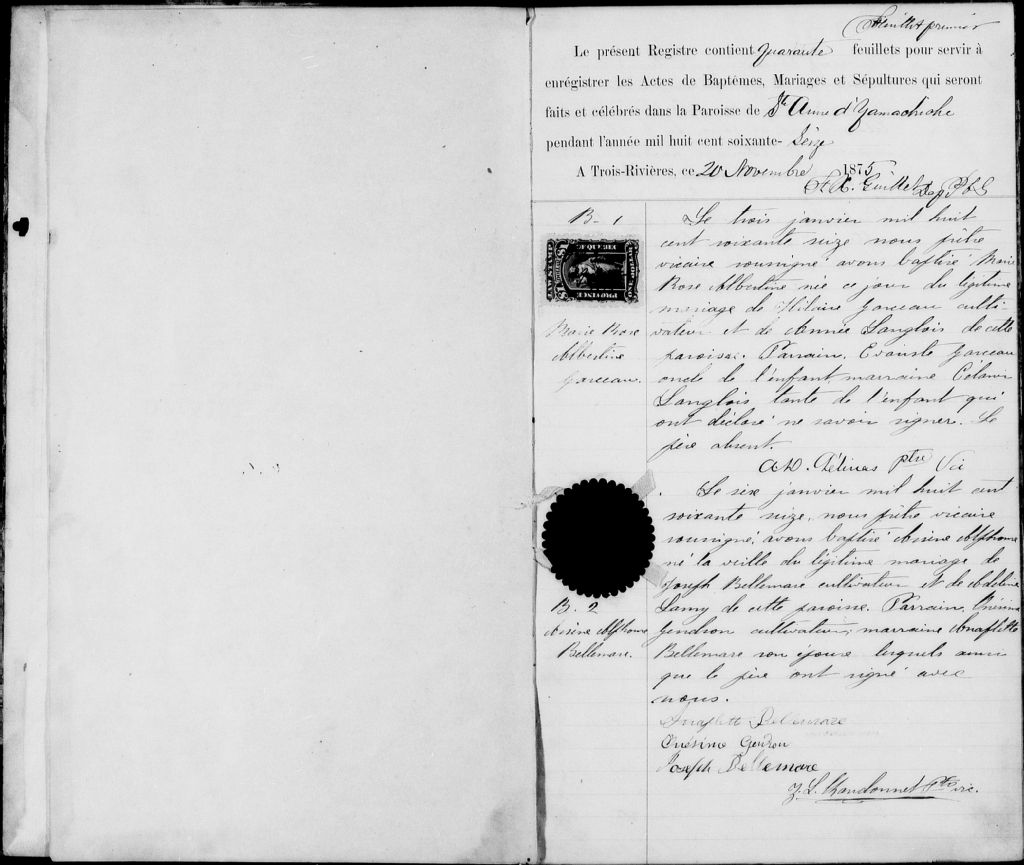 Feuillet premier
Le présent Registre contient quarante feuillets pour servir à
enrégistrer les Actes de Baptêmes, Mariages et Sépultures qui seront
faits et célébrés dans la Paroisse de Ste Anne d'Yamachiche
pendant l'année mil huit cent soixante- Seize
A Trois-Rivières, ce 20 Novembre 1875
F. X. Guillet Dep P C S
B. 1
PROVINCE
QUEBEC
$1
Marie Rose
Albertine
Garceau.
Le trois janvier mil huit
cent soixante seize nous prêtre
vicaire soussigné avons baptisé Marie
Rose Albertine née ce jour du légitime
mariage de Hilaire Garceau culti-
vateur et de Annie Langlois de cette
paroisse. Parrain, Evariste Garceau
oncle de l'enfant, marraine Célanir
Langlois tante de l'enfant qui
ont déclaré ne savoir signer. Le
père absent.
A. D. Gélinas ptre Vic
B. 2
Arsène Alphonse
Bellemare.
Le six janvier mil huit cent
soixante seize, nous prêtre vicaire
soussigné, avons baptisé Arsène Alphonse
né la veille du légitime mariage de
Joseph Bellemare cultivateur et de Adeline
Lamy de cette paroisse. Parrain, Onésime
Gendron cultivateur; marraine Anaflette
Bellemare son épouse lesquels ainsi
que le père ont signé avec
nous.
Anaflette Bellemare
Onésime Gendron
Joseph Bellemare
Z. L. Mandonnet Ptre vic.